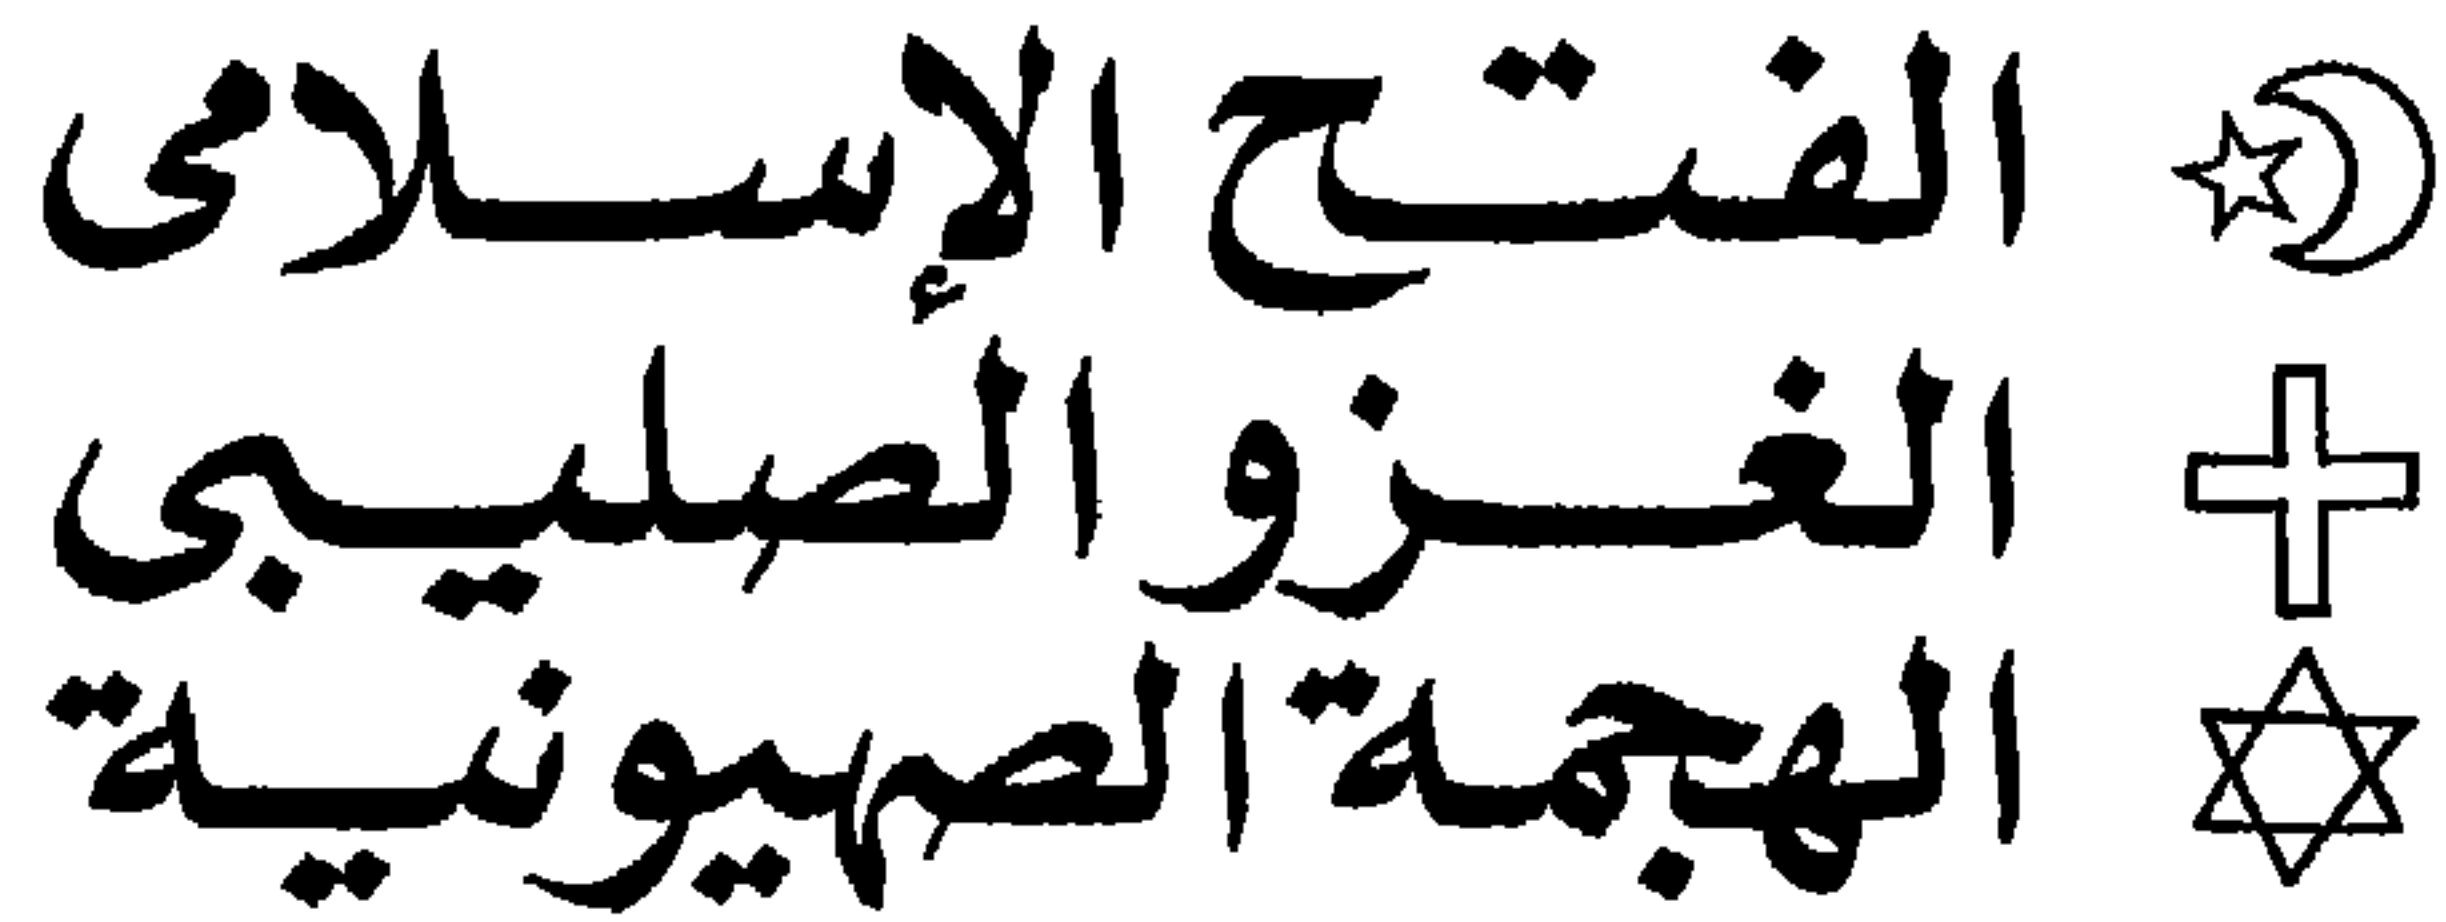 الفتح الإسلامى
الغزو الصليبى
الهجمة الصهيونية